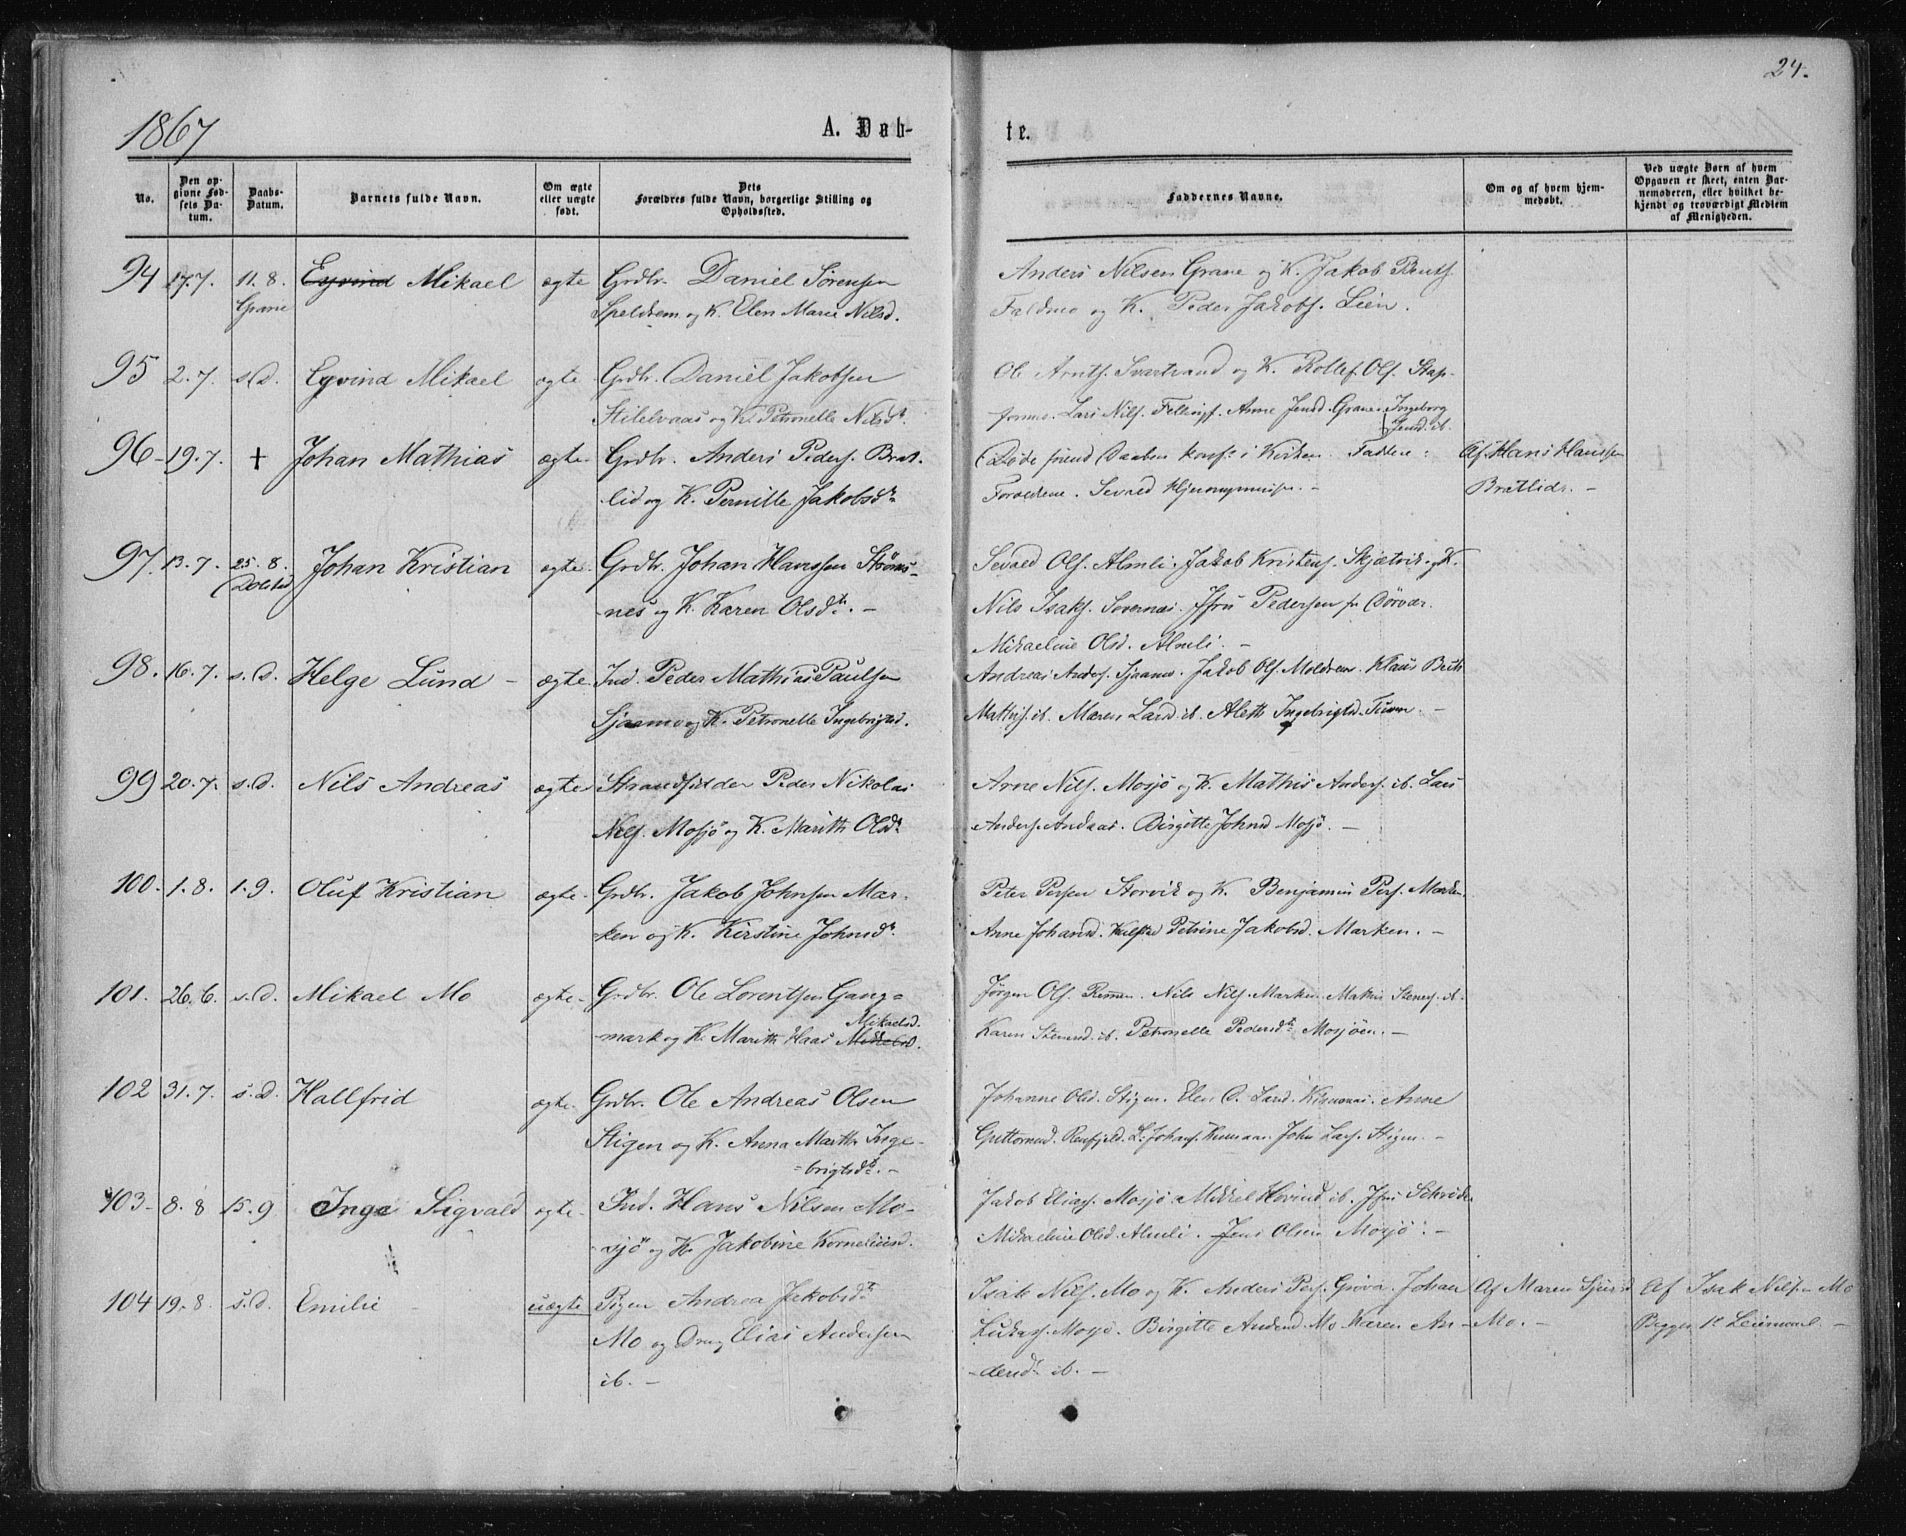 24.
1867
A. Døb-
te.
No.
Den op-
givne Fød-
sels Da-
tum.
Daabs-
Datum.
Barnets fulde Navn.
Om ægte
eller uægte
født.
Dets
Forældres fulde Navn, borgerlige Stilling og
Opholdssted.
Faddernes Navne.
Om og af hvem hjem-
medøbt.
Ved uægte Børn af hvem
Opgaven er skeet, enten Bar-
nemoderen, eller hvilket be-
kjendt og troværdigt Medlem
af Menigheden.
94 17.7. 11.8. Eyvind Mikael ægte Grdbr. Daniel Sørensen
Grane Speldrem og K. Elen Marie Nilsd.
Anders Nilsen Grane og K. Jakob Bents.
Faldmo og K. Peder Jakobs. Lien.
95 2.7. s.D. Eyvind Mikael ægte Grdbr. Daniel Jakobsen
og K. Petronelle Nilsdt.
Ol Arnts. Svartvand og K. Rollef Ols. Stap-
Lars Nils. Anne Jensd. Grane. Ingeborg
Jensd. ib.
96 19.7. + Johan Mathias ægte Grdbr. Anders Peders. Brat-
lid og K. Pernille Jakobsdt.
Døde førend Daaben konf. i Kirken. Faddere:
Forældrene. Sevald
Af Hans Hanssen
Bratlid. -
97. 13.7. 25.8. Johan Kristian ægte Grdbr. Johan Hanssen Strøms-
Dolstad -nes og K. Karen Olsdt. -
Sevald Ols. Almli. Jakob Kristens. Skjætvik og K.
Nils Isaks. Jfru Pedersen
Mikaeline Olsd. Almli. -
98. 16.7. s.D. Helge Lund - ægte Ind. Peder Mathias Paulsen
Sjaamo og K. Petronelle Ingebrigtsd.
Andreas Anders. Sjaamo. Jakob Ols. Moldrem. Klaus
ib. Maren Larsd. ib. Aleth Ingebrigtsd. -
99 20.7. s.D. Nils Andreas ægte Strandsidder Peder Nikolai
Nils. Mosjø og K. Marith Olsdt.
Arne Nils. Mosjø og K. Mathis Anders. ib. Lars
Anders. Andaas. Birgitte Johnsd. Mosjø. -
100. 1.8. 1.9. Oluf Kristian ægte Grdbr. Jakob Johnsen Mar-
-ken og K. Kirstine Johnsdt.
Peter Persen Storvik og K. Benjamin Pers. Marken.
Anne Johansd. Kulstad Petrine Jakobsd. Marken. -
101. 26.6. s.D. Mikael Mo ægte Grdbr. Ole Lorentsen Gang-
Mikaelsd.
-mark og K. Marith Haas Mikkelsd.
Jørgen Ols. Remen. Nils Nils. Marken. Mathis Stenes. ib.
Karen Stenesd. ib. Petronelle Pedersdt. Mosjøen. -
102 31.7. s.D. Hallfrid ægte Grdbr. Ole Andreas Olsen
Stigen og K. Anna Marth. Inge-
-brigtsdt. -
Johanne Olsd. Stigen. Elen D. Larsd. Anne
Guttormsd. Renfjeld. L. Johans. John Lars. Stigen. -
103 8.8 15.9 Inga Sigvald ægte Ind. Hans Nilsen Mo-
-sjø og K. Jakobine Korneliusd.
Jakob Elias. Mosjø Mikkel Hovind ib. Jfru Schrøder
Mikaeline Olsd. Almli. Jens Olsen Mosjø. -
104 19.8. s.D. Emilie uægte Pigen Andrea Jakobsdt.
Mo og Dreng Elias Andersen
ib. -
Isak Nils. Mo og K. Anders Pers. Grova. Johan
Lukass. Mosjø. Birgitte Andersd. Mo Karen An-
-dersdt. ib. -
Af Maren Sjursd.
Mo. -
Af Isak Nilsen Mo
Begges 1ste Leiermaal. -